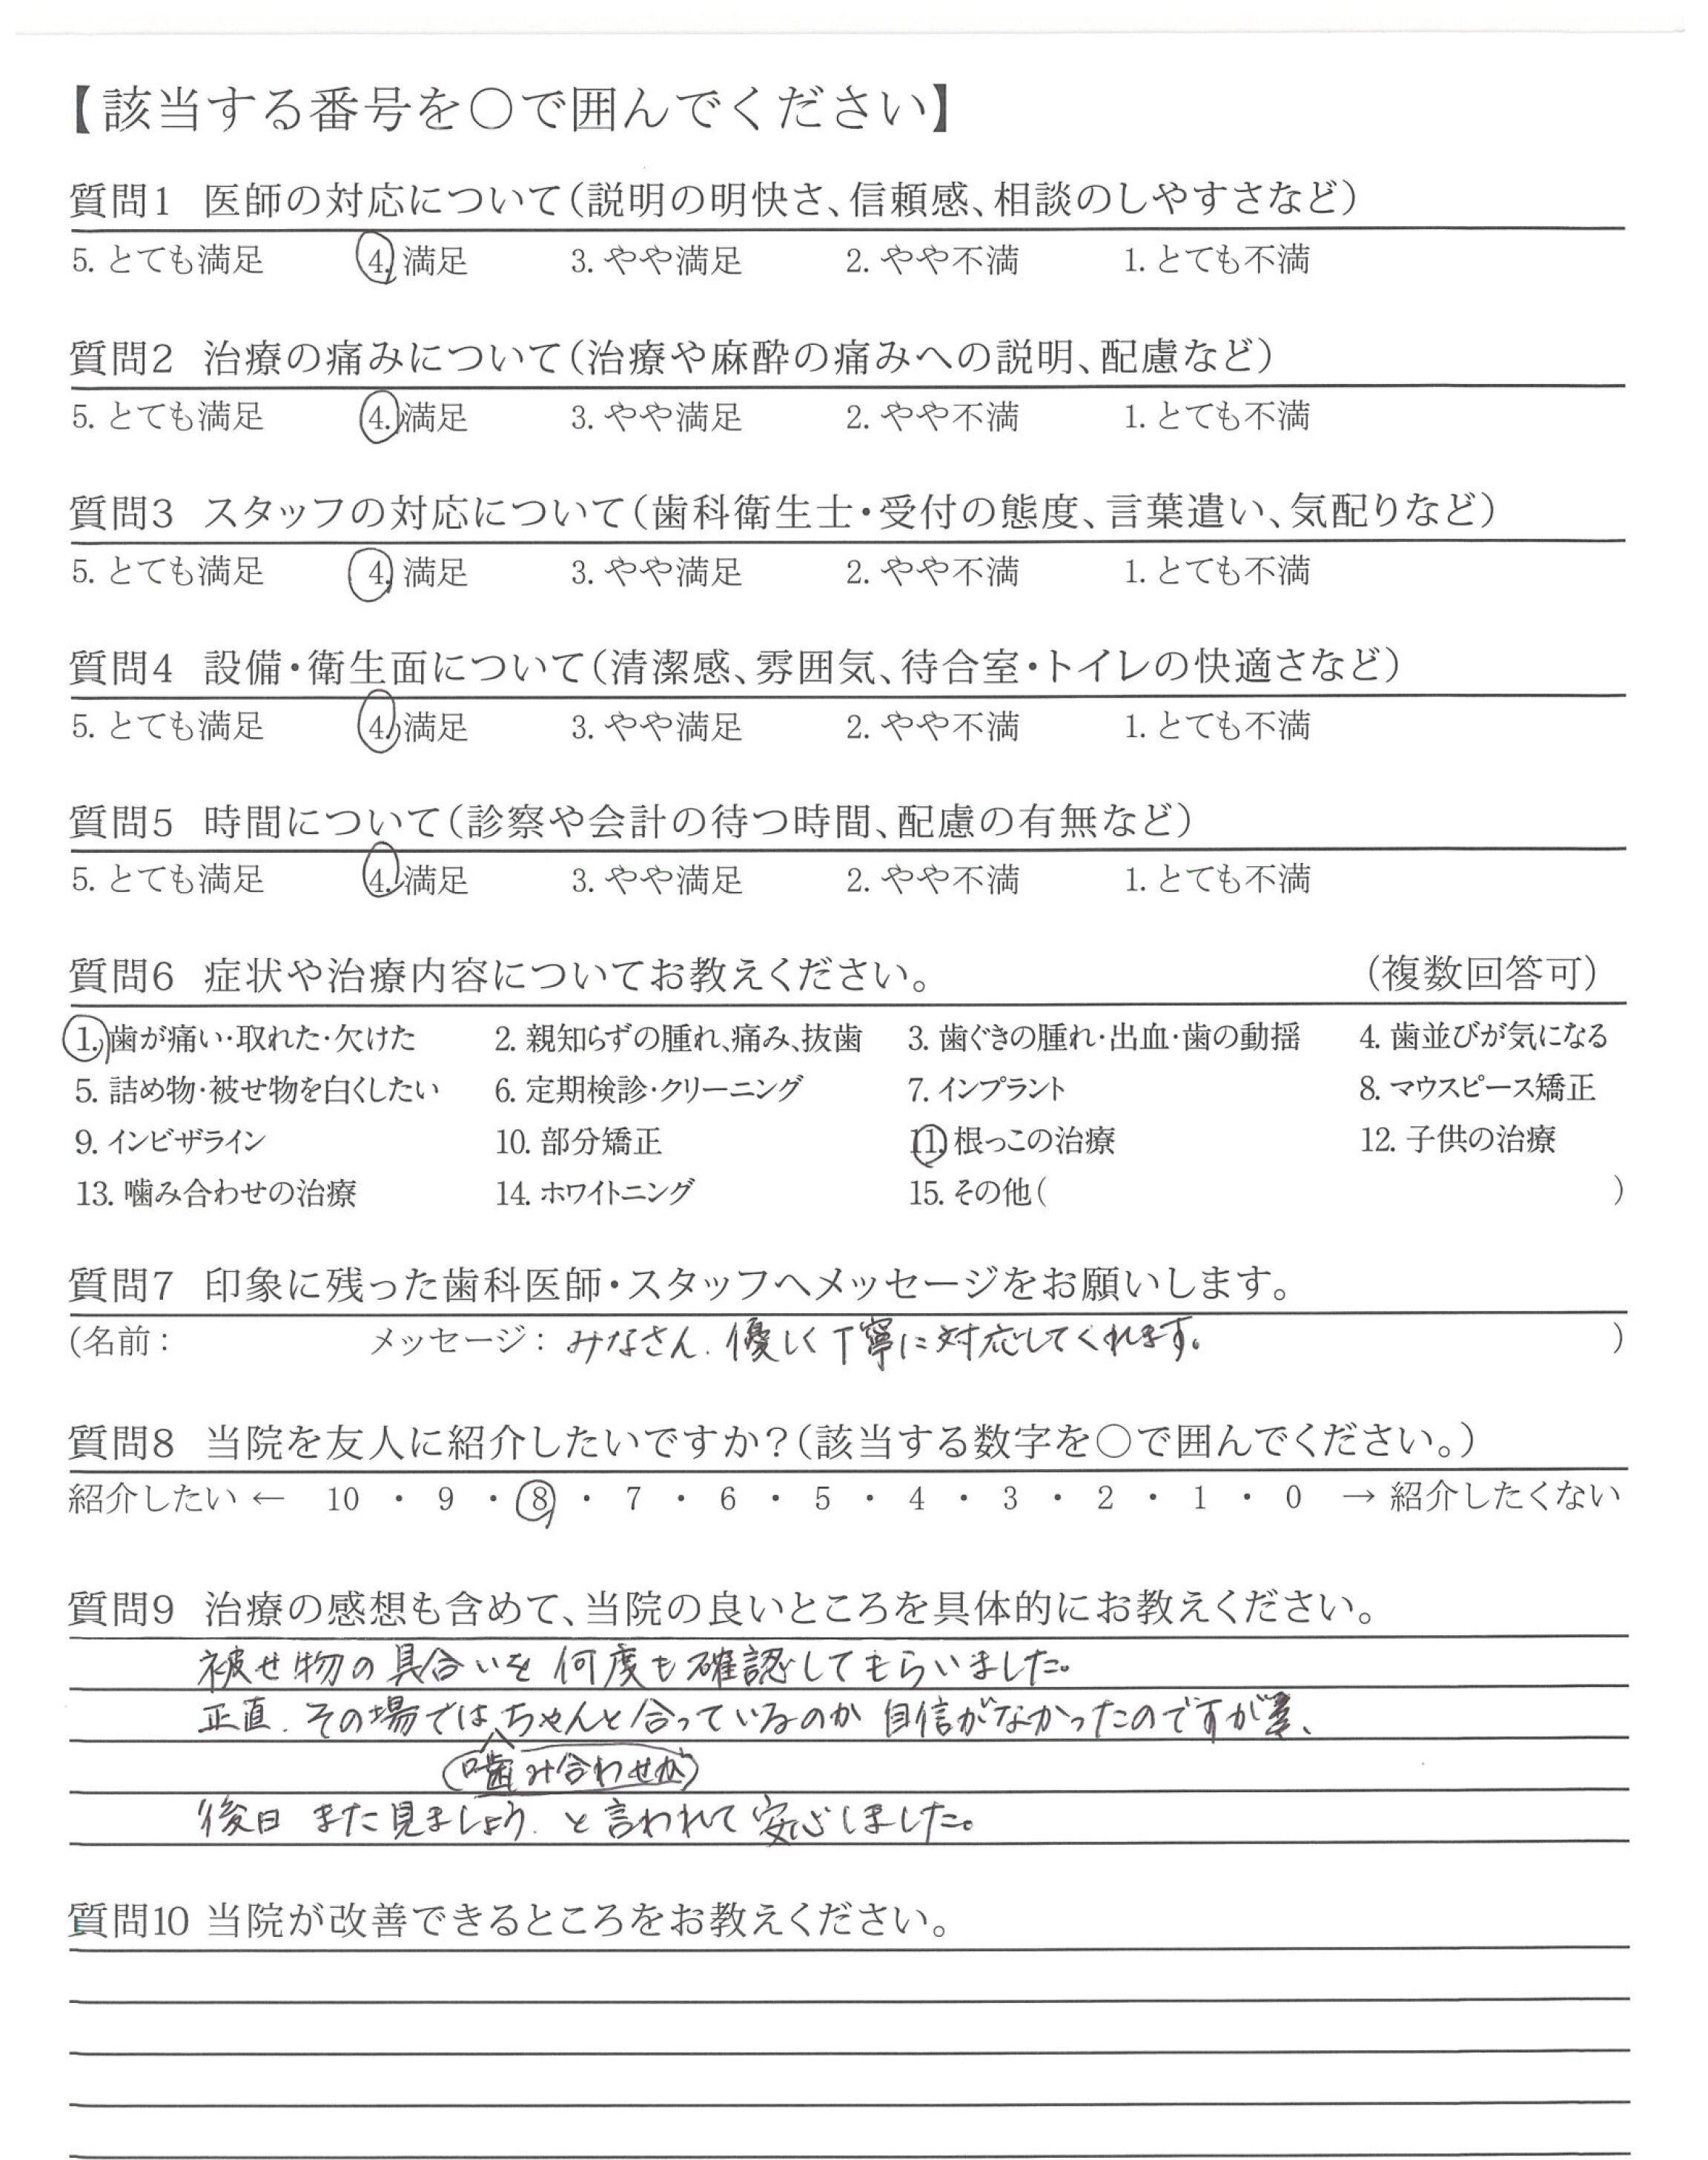 【該当する番号を○で囲んでください】
質問1 医師の対応について(説明の明快さ、信頼感、相談のしやすさなど)
5. とても満足 4. 満足 3. やや満足 2. やや不満 1. とても不満
質問2 治療の痛みについて(治療や麻酔の痛みへの説明、配慮など)
5. とても満足 4. 満足 3. やや満足 2. やや不満 1. とても不満
質問3 スタッフの対応について(歯科衛生士・受付の態度、言葉遣い、気配りなど)
5. とても満足 4. 満足 3. やや満足 2. やや不満 1. とても不満
質問4 設備・衛生面について(清潔感、雰囲気、待合室・トイレの快適さなど)
5. とても満足 4. 満足 3. やや満足 2. やや不満 1. とても不満
質問5 時間について(診察や会計の待つ時間、配慮の有無など)
5. とても満足 4. 満足 3. やや満足 2. やや不満 1. とても不満
質問6 症状や治療内容についてお教えください。 (複数回答可)
1. 歯が痛い・取れた・欠けた 2. 親知らずの腫れ、痛み、抜歯 3. 歯ぐきの腫れ・出血・歯の動揺 4. 歯並びが気になる
5. 詰め物・被せ物を白くしたい 6. 定期検診・クリーニング 7. インプラント 8. マウスピース矯正
9. インビザライン 10. 部分矯正 11. 根っこの治療 12. 子供の治療
13. 噛み合わせの治療 14. ホワイトニング 15. その他( )
質問7 印象に残った歯科医師・スタッフへメッセージをお願いします。
(名前: メッセージ: みなさん、優しく丁寧に対応してくれます。 )
質問8 当院を友人に紹介したいですか?(該当する数字を○で囲んでください。)
紹介したい ← 10 ・ 9 ・ 8 ・ 7 ・ 6 ・ 5 ・ 4 ・ 3 ・ 2 ・ 1 ・ 0 → 紹介したくない
質問9 治療の感想も含めて、当院の良いところを具体的にお教えください。
被せ物の具合いを何度も確認してもらいました。
正直、その場ではちゃんと合っているのか自信がなかったのですが、
噛み合わせが
後日また見ましょう、と言われて安心しました。
質問10 当院が改善できるところをお教えください。